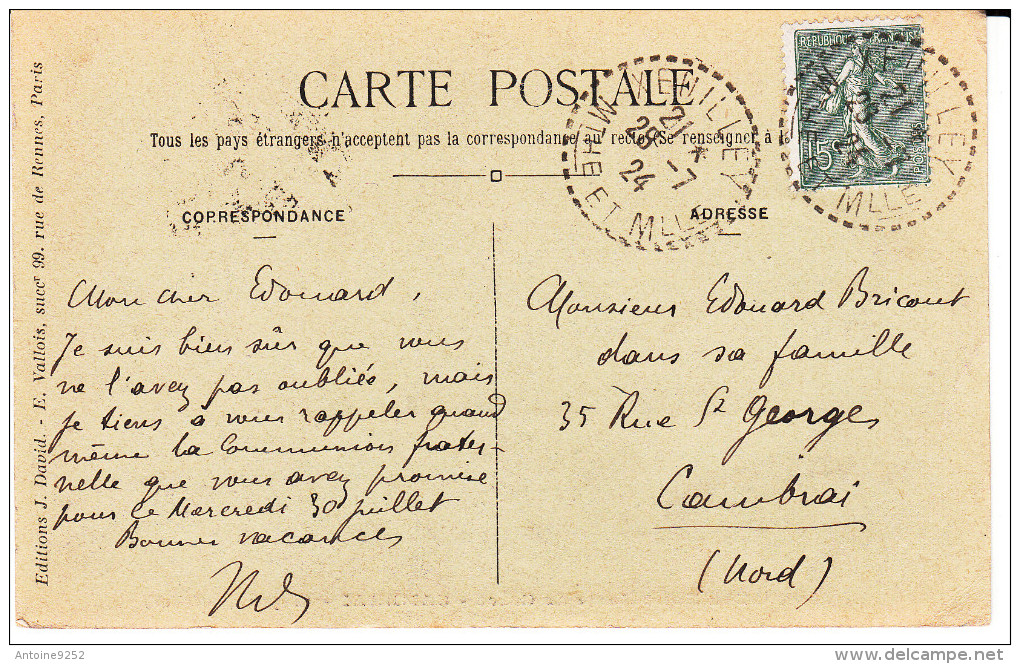 CARTE POSTALE
Tous les pays étrangers n'acceptent pas la correspondance au recto (Se renseigner à la
CORRESPONDANCE
ADRESSE
Mon cher Edouard,
Je suis bien sûr que vous
ne l'avez pas oubliée, mais
je tiens à vous rappeler quand
même la Communion frater-
nelle que vous avez promise
pour le Mercredi 30 juillet
Bonnes vacances
Monsieur Edouard Bricout
dans sa famille
35 Rue St Georges
Cambrai
(Nord)
Editions J. David. - E. Vallois, succr 99. rue de Rennes, Paris
ET MLLE
21 *
28 -7
24
15
MLLE
Antoine9252